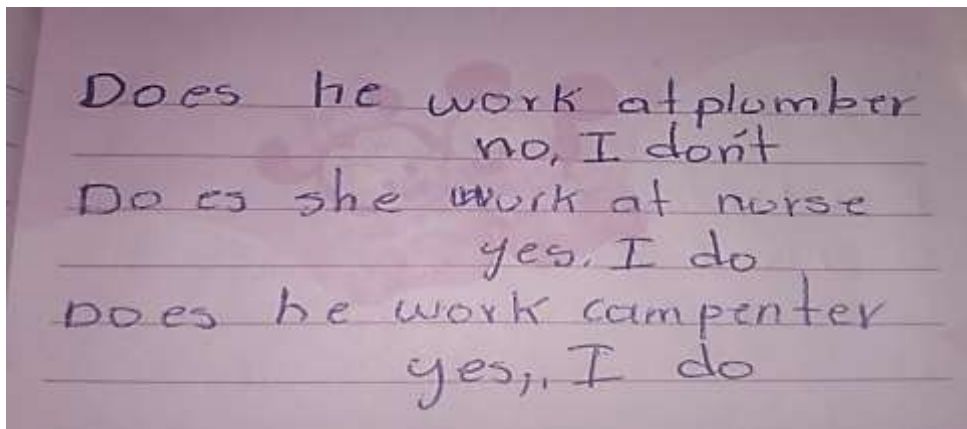 Does he work at plumber
no, I don't
Does she work at nurse
yes. I do
Does he work campenter
yes,, I do